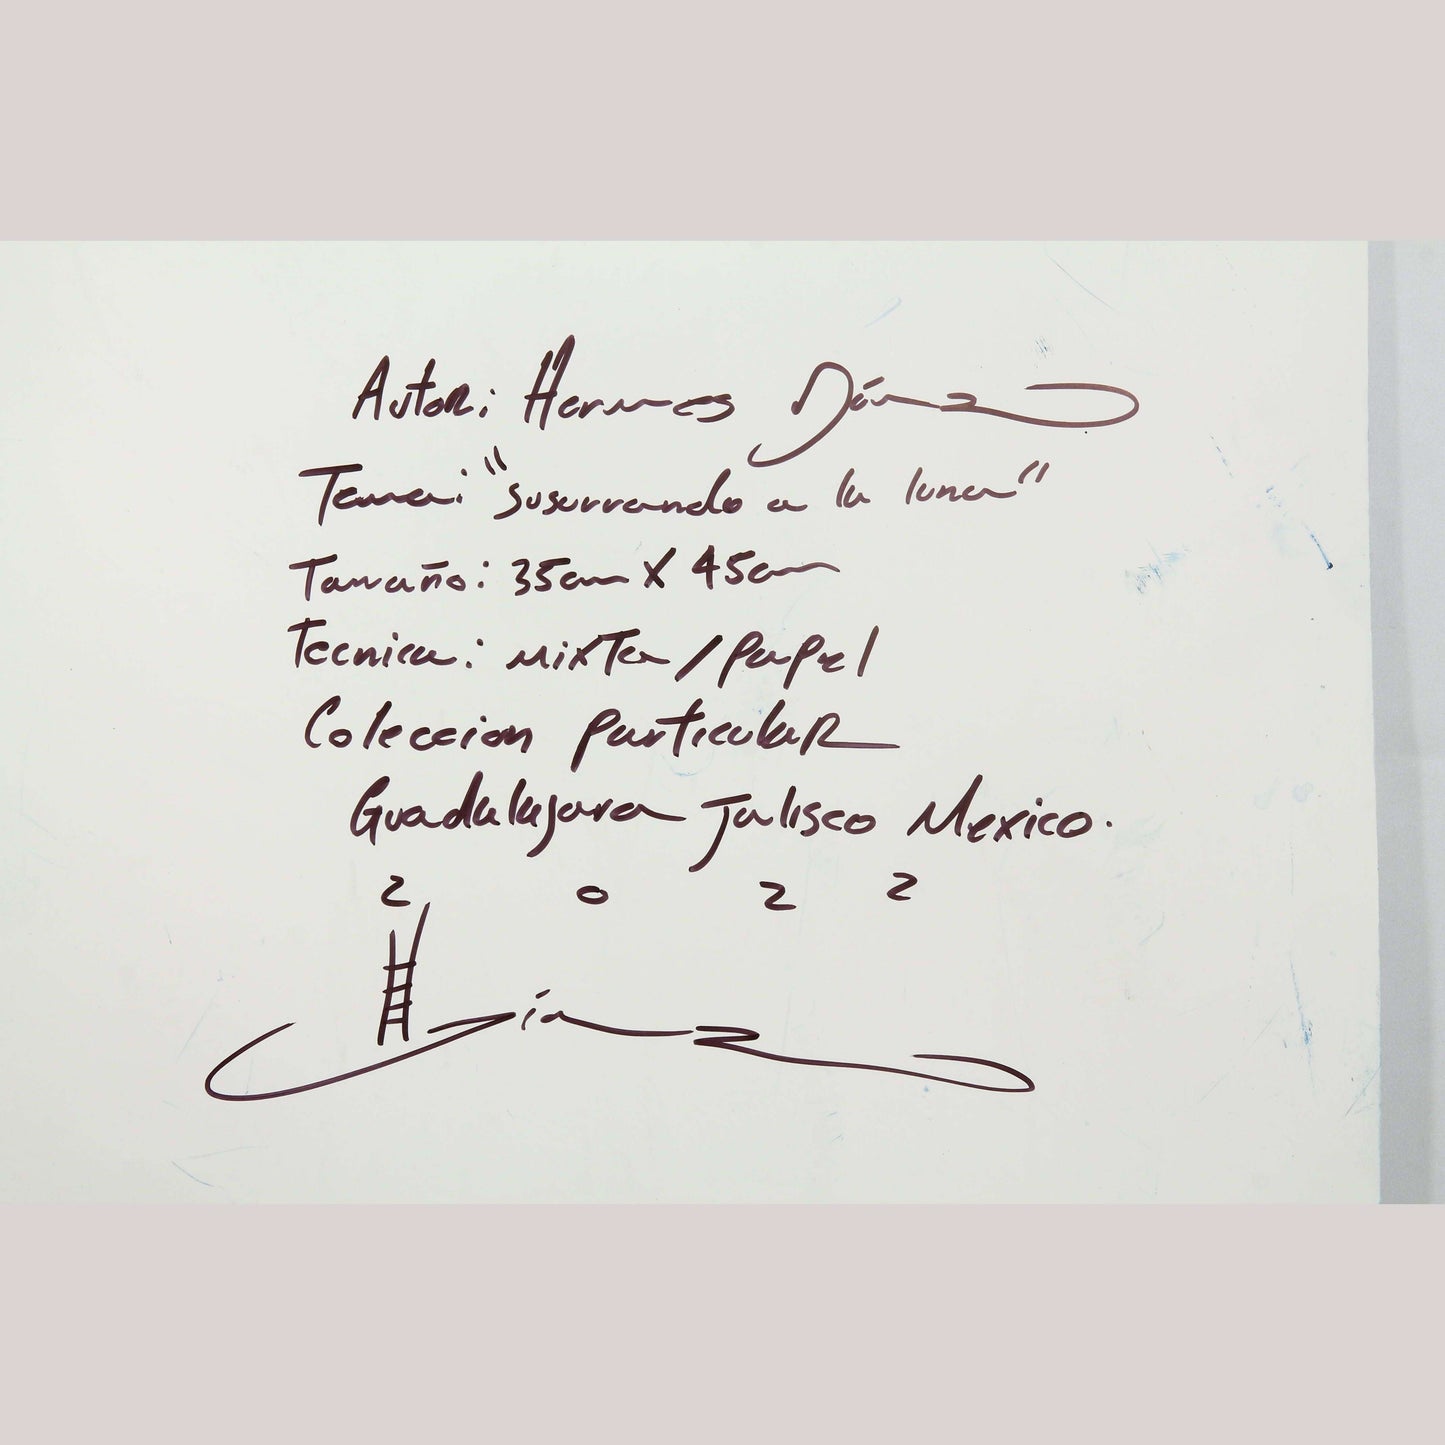 Autor: Hermes Díaz
Tema: "susurrando a la luna"
Tamaño: 35cm X 45cm
Tecnica: mixta/papel
Coleccion particular
Guadalajara Jalisco Mexico.
2 0 2 2
H Díaz